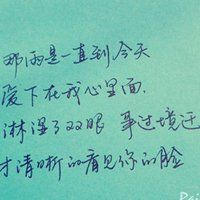 那雨是一直到今天
爱下在我心里面
淋湿了双眼 事过境迁
才清晰的看见你的脸